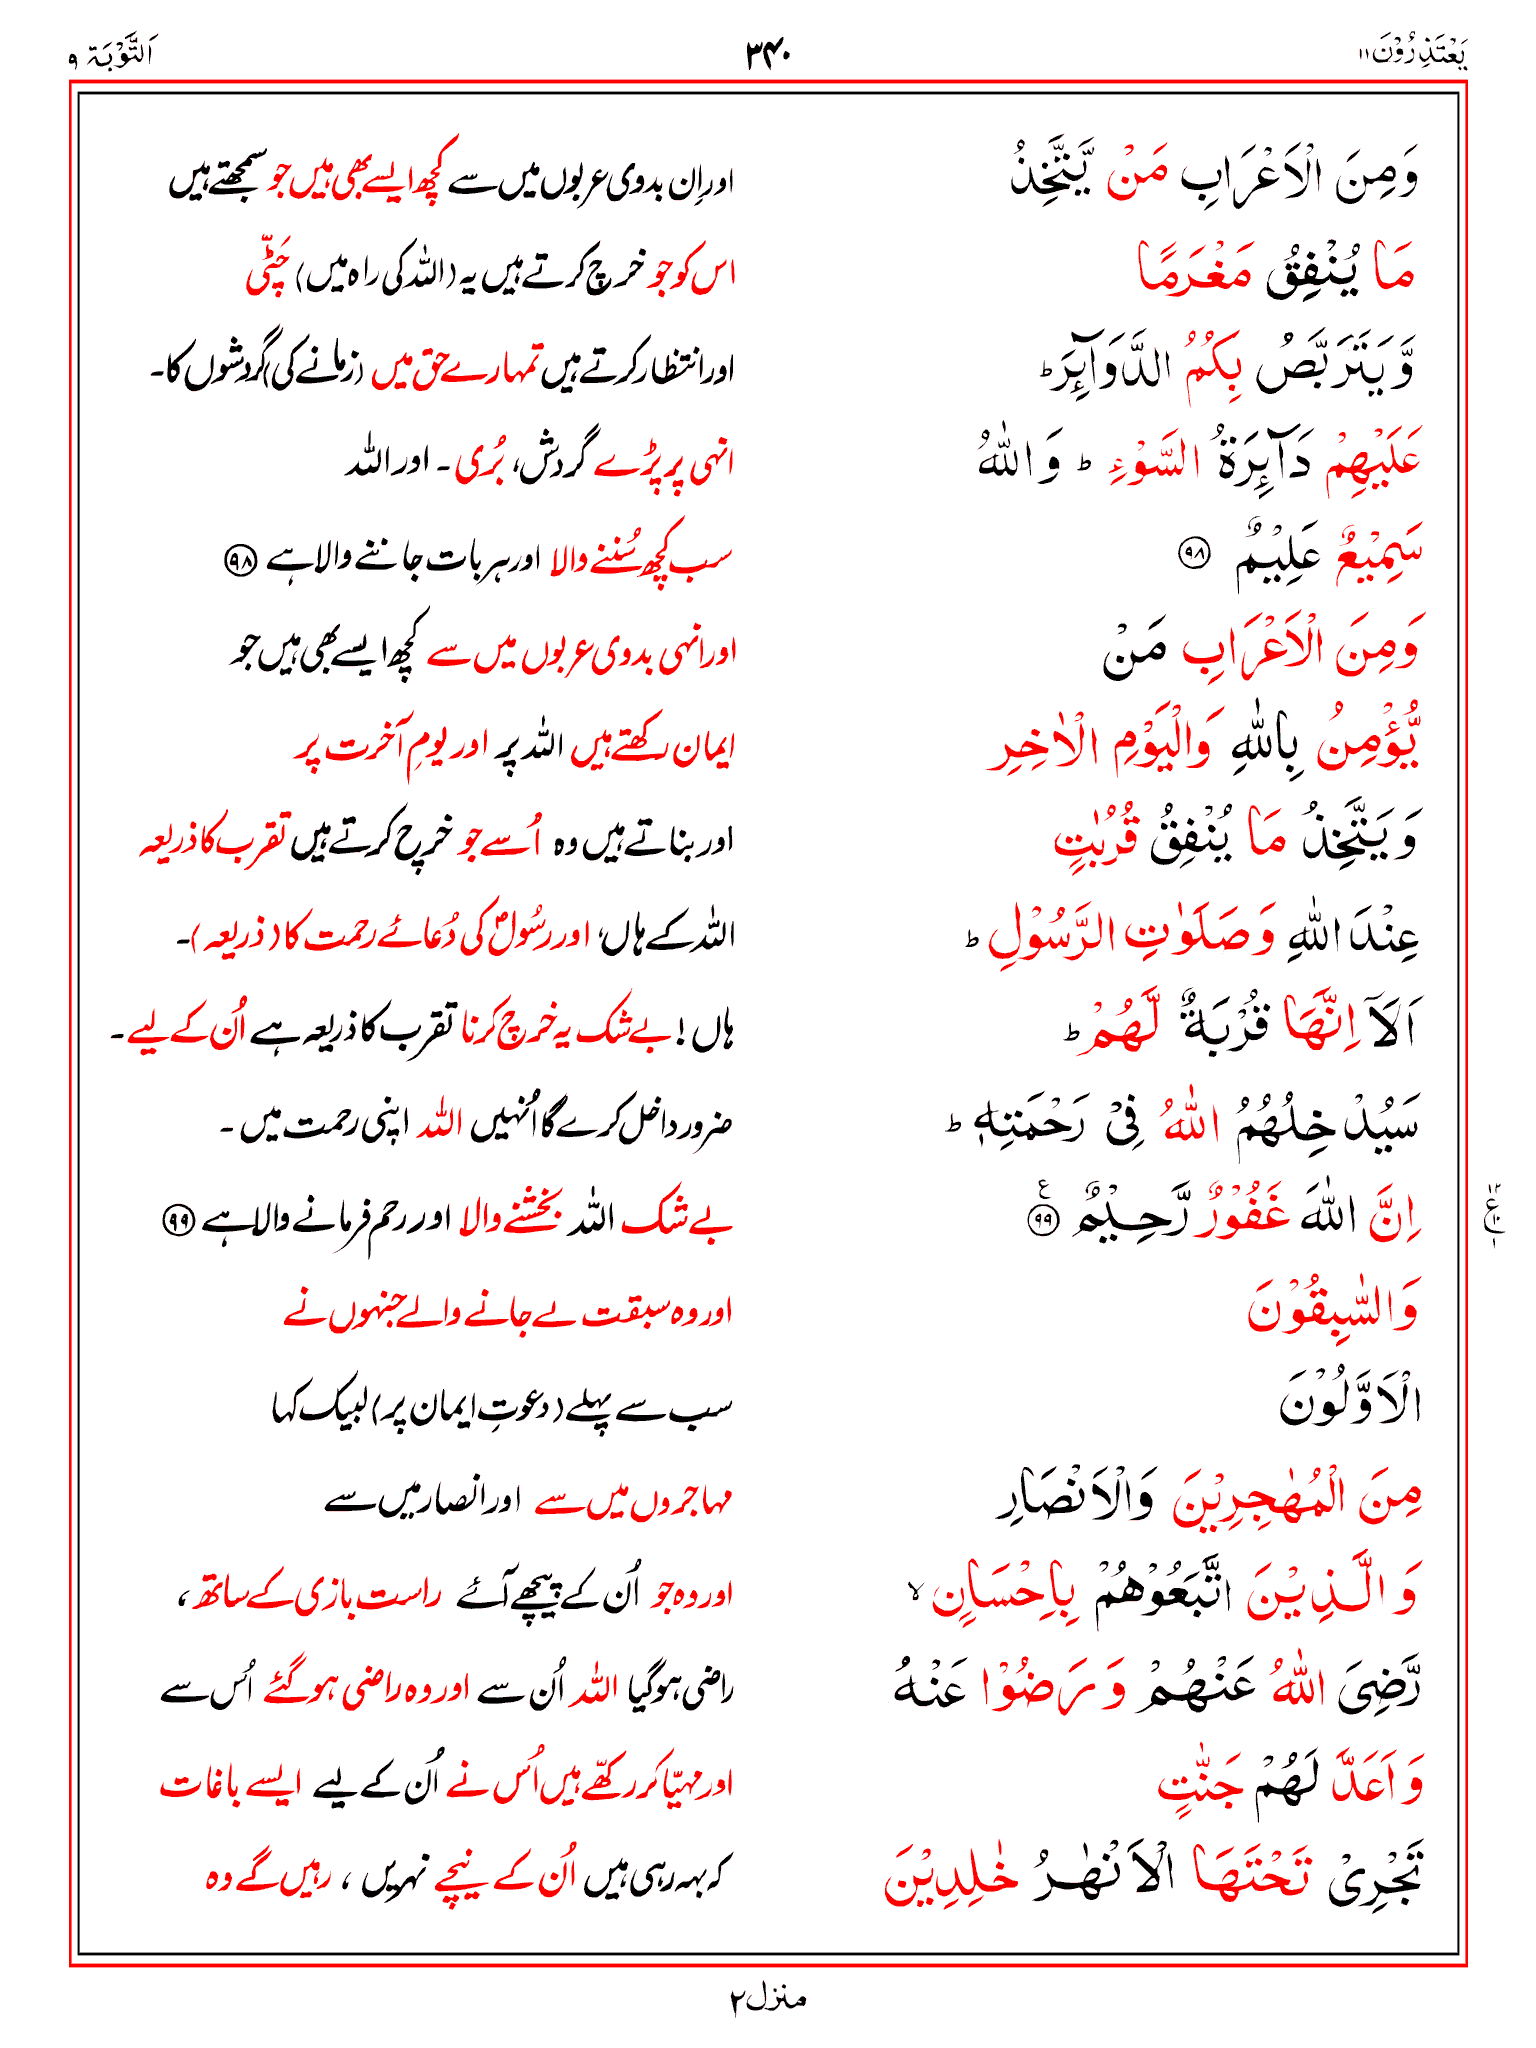 یَعْتَذِرُوْنَ ۱۱ ۳۴۰ اَلتَّوْبَة ۹
وَمِنَ الْاَعْرَابِ مَنْ یَّتَّخِذُ اور اِن بدوی عربوں میں سے کچھ ایسے بھی ہیں جو سمجھتے ہیں
مَا یُنْفِقُ مَغْرَمًا اس کو جو خرچ کرتے ہیں یہ (اللہ کی راہ میں) چَٹّی
وَّ یَتَرَبَّصُ بِكُمُ الدَّوَآئِرَ ؕ اور انتظار کرتے ہیں تمہارے حق میں (زمانے کی) گردشوں کا۔
عَلَیْهِمْ دَآئِرَةُ السَّوْءِ ؕ وَ اللّٰهُ انہی پر پڑے گردش، بُری ۔ اور اللہ
سَمِیْعٌ عَلِیْمٌ ۹۸ سب کچھ سُننے والا اور ہر بات جاننے والا ہے ۹۸
وَمِنَ الْاَعْرَابِ مَنْ اور انہی بدوی عربوں میں سے کچھ ایسے بھی ہیں جو
یُّؤْمِنُ بِاللّٰهِ وَالْیَوْمِ الْاٰخِرِ ایمان رکھتے ہیں اللہ پر اور یومِ آخرت پر
وَ یَتَّخِذُ مَا یُنْفِقُ قُرُبٰتٍ اور بناتے ہیں وہ اُسے جو خرچ کرتے ہیں تقرب کا ذریعہ
عِنْدَ اللّٰهِ وَ صَلَوٰتِ الرَّسُوْلِ ؕ اللہ کے ہاں، اور رسُولؐ کی دُعائے رحمت کا (ذریعہ)۔
اَلَاۤ اِنَّهَا قُرْبَةٌ لَّهُمْ ؕ ہاں! بے شک یہ خرچ کرنا تقرب کا ذریعہ ہے اُن کے لیے ۔
سَیُدْخِلُهُمُ اللّٰهُ فِیْ رَحْمَتِهٖ ؕ ضرور داخل کرے گا اُنہیں اللہ اپنی رحمت میں ۔
اِنَّ اللّٰهَ غَفُوْرٌ رَّحِیْمٌ ۹۹ ع بے شک اللہ بخشنے والا اور رحم فرمانے والا ہے ۹۹
وَالسّٰبِقُوْنَ اور وہ سبقت لے جانے والے جنہوں نے
الْاَوَّلُوْنَ سب سے پہلے (دعوتِ ایمان پر) لبیک کہا
مِنَ الْمُهٰجِرِیْنَ وَالْاَنْصَارِ مہاجروں میں سے اور انصار میں سے
وَ الَّذِیْنَ اتَّبَعُوْهُمْ بِاِحْسَانٍ ۙ اور وہ جو اُن کے پیچھے آئے راست بازی کے ساتھ ،
رَّضِیَ اللّٰهُ عَنْهُمْ وَ رَضُوْا عَنْهُ راضی ہو گیا اللہ اُن سے اور وہ راضی ہو گئے اُس سے
وَ اَعَدَّ لَهُمْ جَنّٰتٍ اور مہیّا کر رکھے ہیں اُس نے اُن کے لیے ایسے باغات
تَجْرِیْ تَحْتَهَا الْاَنْهٰرُ خٰلِدِیْنَ کہ بہہ رہی ہیں اُن کے نیچے نہریں ، رہیں گے وہ
منزل ۲